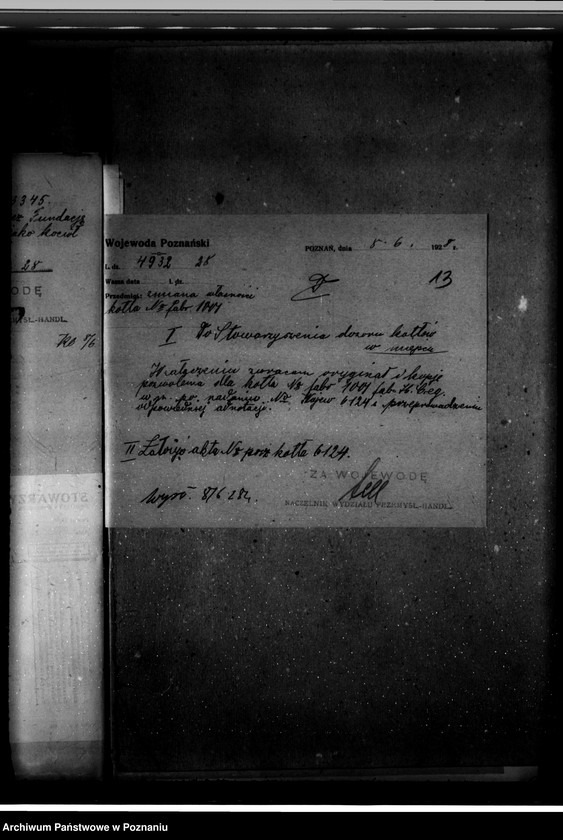 3345.
Fundacją
jako kocioł
28
ODĘ
YSŁ.-HANDL.
STOWARZY
Wojewoda Poznański
POZNAŃ, dnia 5. 6. 1928 r.
L. dz. 4932 28
Wasza data l. dz.
13
Przedmiot: zmiana własności
kotła Nr fabr 1001
I Do Stowarzyszenia dozoru kotłów
w miejscu
W załączeniu zwracam oryginał i kopję
pozwolenia dla kotła Nr fabr. fabr. H. Ceg.
w po nadaniu Nr Wojew 6124 i przeprowadzeniu
odpowiedniej adnotacji.
II Założyć akta Nr porz kotła 6124.
ZA WOJEWODĘ
8/6 28
NACZELNIK WYDZIAŁU PRZEMYSŁ.-HANDL.
Archiwum Państwowe w Poznaniu